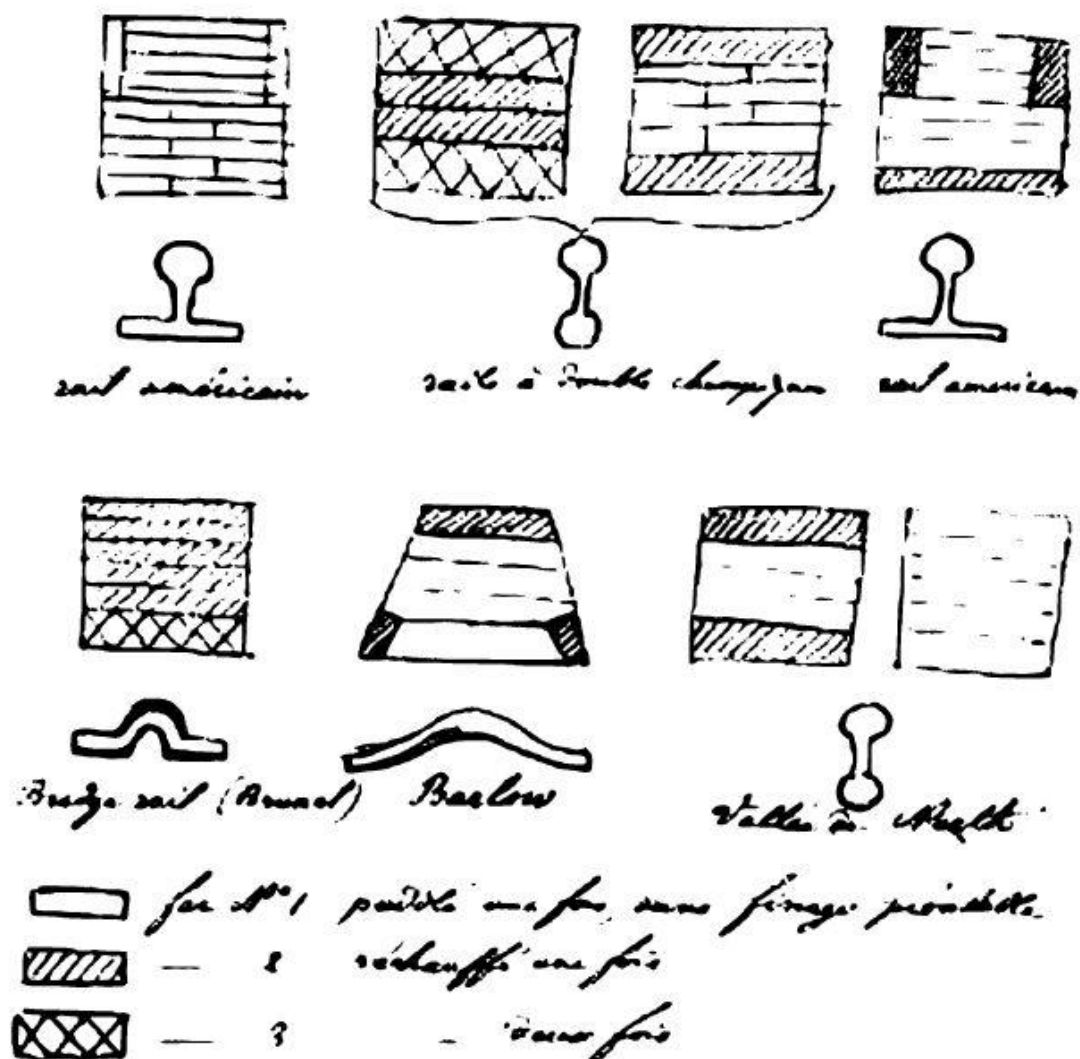 rail américain rails à double champignon rail américain
Bridge rail (Brunel) Barlow Vallée de Neath
fer No 1 puddlé une fois, sans finage préalable
— 2 réchauffé une fois
— 3 - deux fois